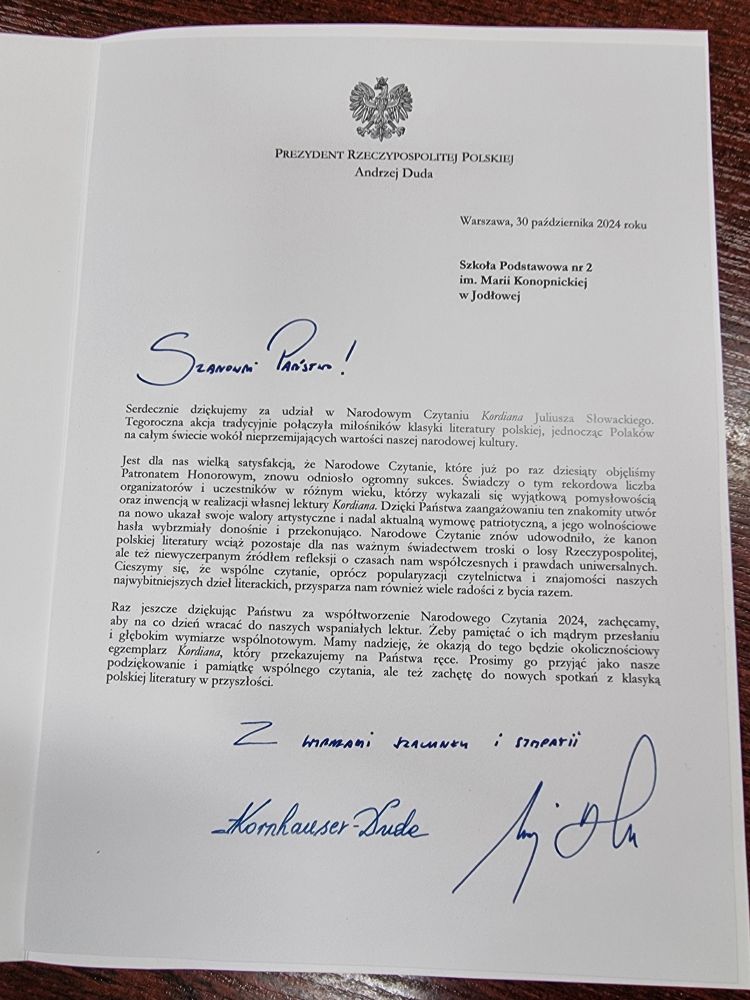 PREZYDENT RZECZYPOSPOLITEJ POLSKIEJ
Andrzej Duda
Warszawa, 30 października 2024 roku
Szkoła Podstawowa nr 2
im. Marii Konopnickiej
w Jodłowej
Szanowni Państwo!
Serdecznie dziękujemy za udział w Narodowym Czytaniu Kordiana Juliusza Słowackiego.
Tegoroczna akcja tradycyjnie połączyła miłośników klasyki literatury polskiej, jednocząc Polaków
na całym świecie wokół nieprzemijających wartości naszej narodowej kultury.
Jest dla nas wielką satysfakcją, że Narodowe Czytanie, które już po raz dziesiąty objęliśmy
Patronatem Honorowym, znowu odniosło ogromny sukces. Świadczy o tym rekordowa liczba
organizatorów i uczestników w różnym wieku, którzy wykazali się wyjątkową pomysłowością
oraz inwencją w realizacji własnej lektury Kordiana. Dzięki Państwa zaangażowaniu ten znakomity utwór
na nowo ukazał swoje walory artystyczne i nadal aktualną wymowę patriotyczną, a jego wolnościowe
hasła wybrzmiały donośnie i przekonująco. Narodowe Czytanie znów udowodniło, że kanon
polskiej literatury wciąż pozostaje dla nas ważnym świadectwem troski o losy Rzeczypospolitej,
ale też niewyczerpanym źródłem refleksji o czasach nam współczesnych i prawdach uniwersalnych.
Cieszymy się, że wspólne czytanie, oprócz popularyzacji czytelnictwa i znajomości naszych
najwybitniejszych dzieł literackich, przysparza nam również wiele radości z bycia razem.
Raz jeszcze dziękując Państwu za współtworzenie Narodowego Czytania 2024, zachęcamy,
aby na co dzień wracać do naszych wspaniałych lektur. Żeby pamiętać o ich mądrym przesłaniu
i głębokim wymiarze wspólnotowym. Mamy nadzieję, że okazją do tego będzie okolicznościowy
egzemplarz Kordiana, który przekazujemy na Państwa ręce. Prosimy go przyjąć jako nasze
podziękowanie i pamiątkę wspólnego czytania, ale też zachętę do nowych spotkań z klasyką
polskiej literatury w przyszłości.
Z wyrazami szacunku i sympatii
Kornhauser-Duda